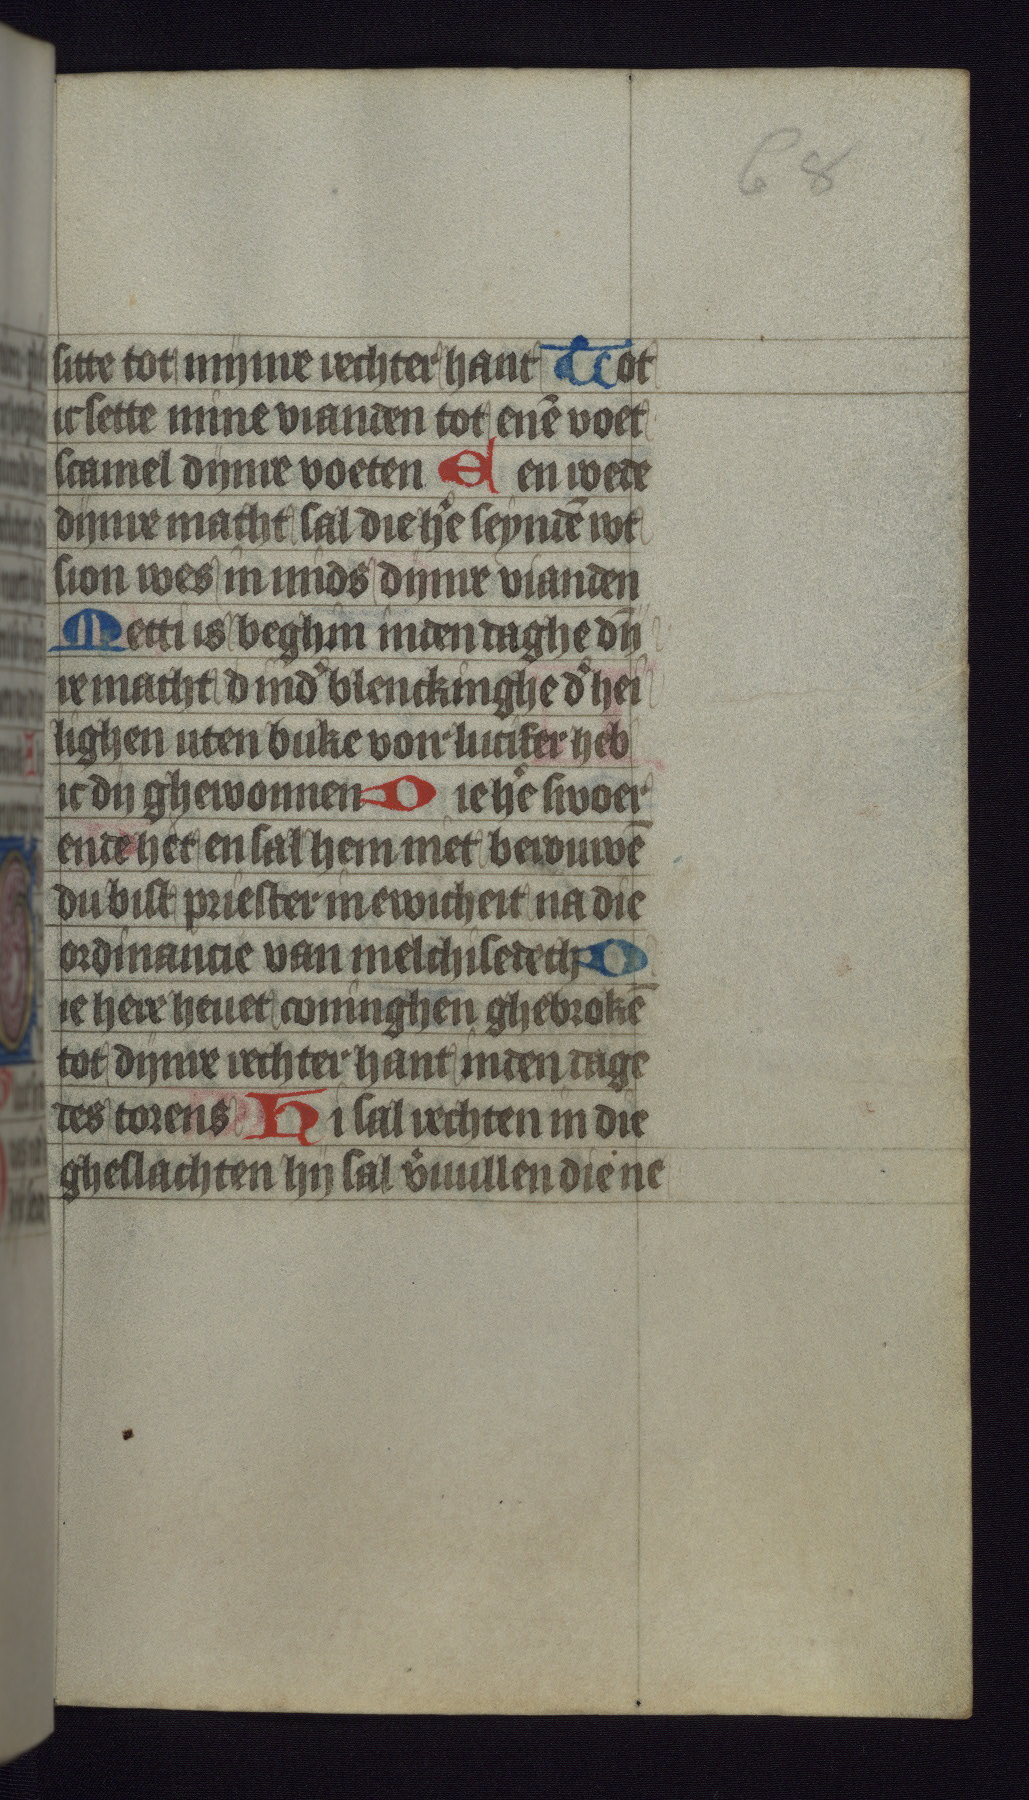 68
sitte tot mijnre rechter hant Tot
ic sette mine vianden tot enē voet
scamel dijnre voeten Een roede
dijnre macht sal die h̾e seyndē wt
sion wes in mids dijnre vianden
Metti is beghin inden daghe dijn
re macht d ind̾ blenckinghe d̾ hei
lighen uten buke voir lucifer heb
ic dij ghewonnen Die h̾e swoer
ende het en sal hem niet berouwē
du bist priester in ewicheit na die
ordinancie van melchisedech D
ie here hevet coninghen ghebrokē
tot dijnre rechter hant inden dage
des torens Hi sal rechten in die
gheslachten hij sal v̾vullen die ne